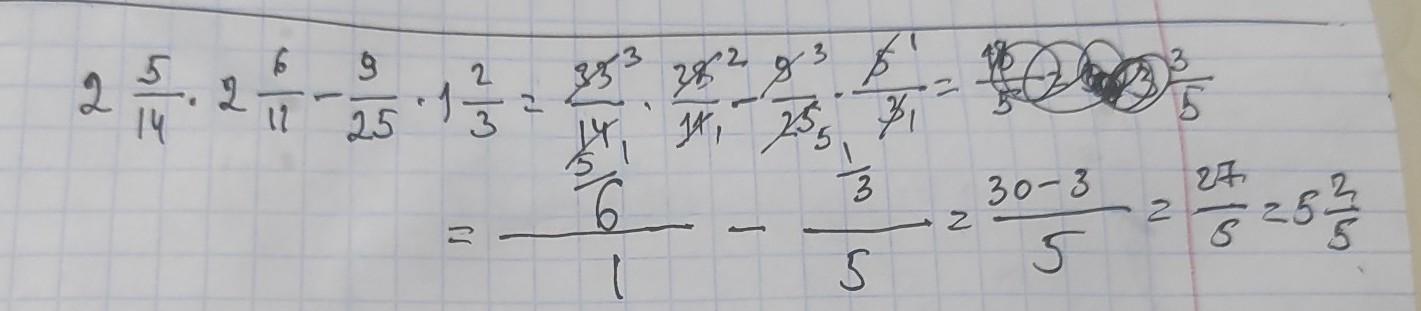 2 5/14 · 2 6/11 - 9/25 · 1 2/3 = 33³/14₁ · 28²/11₁ - 9³/25₅ · 5¹/3₁ = 3/5
= ⁵⁄6/1 - ¹⁄3/5 = 30-3/5 = 27/5 = 5 2/5